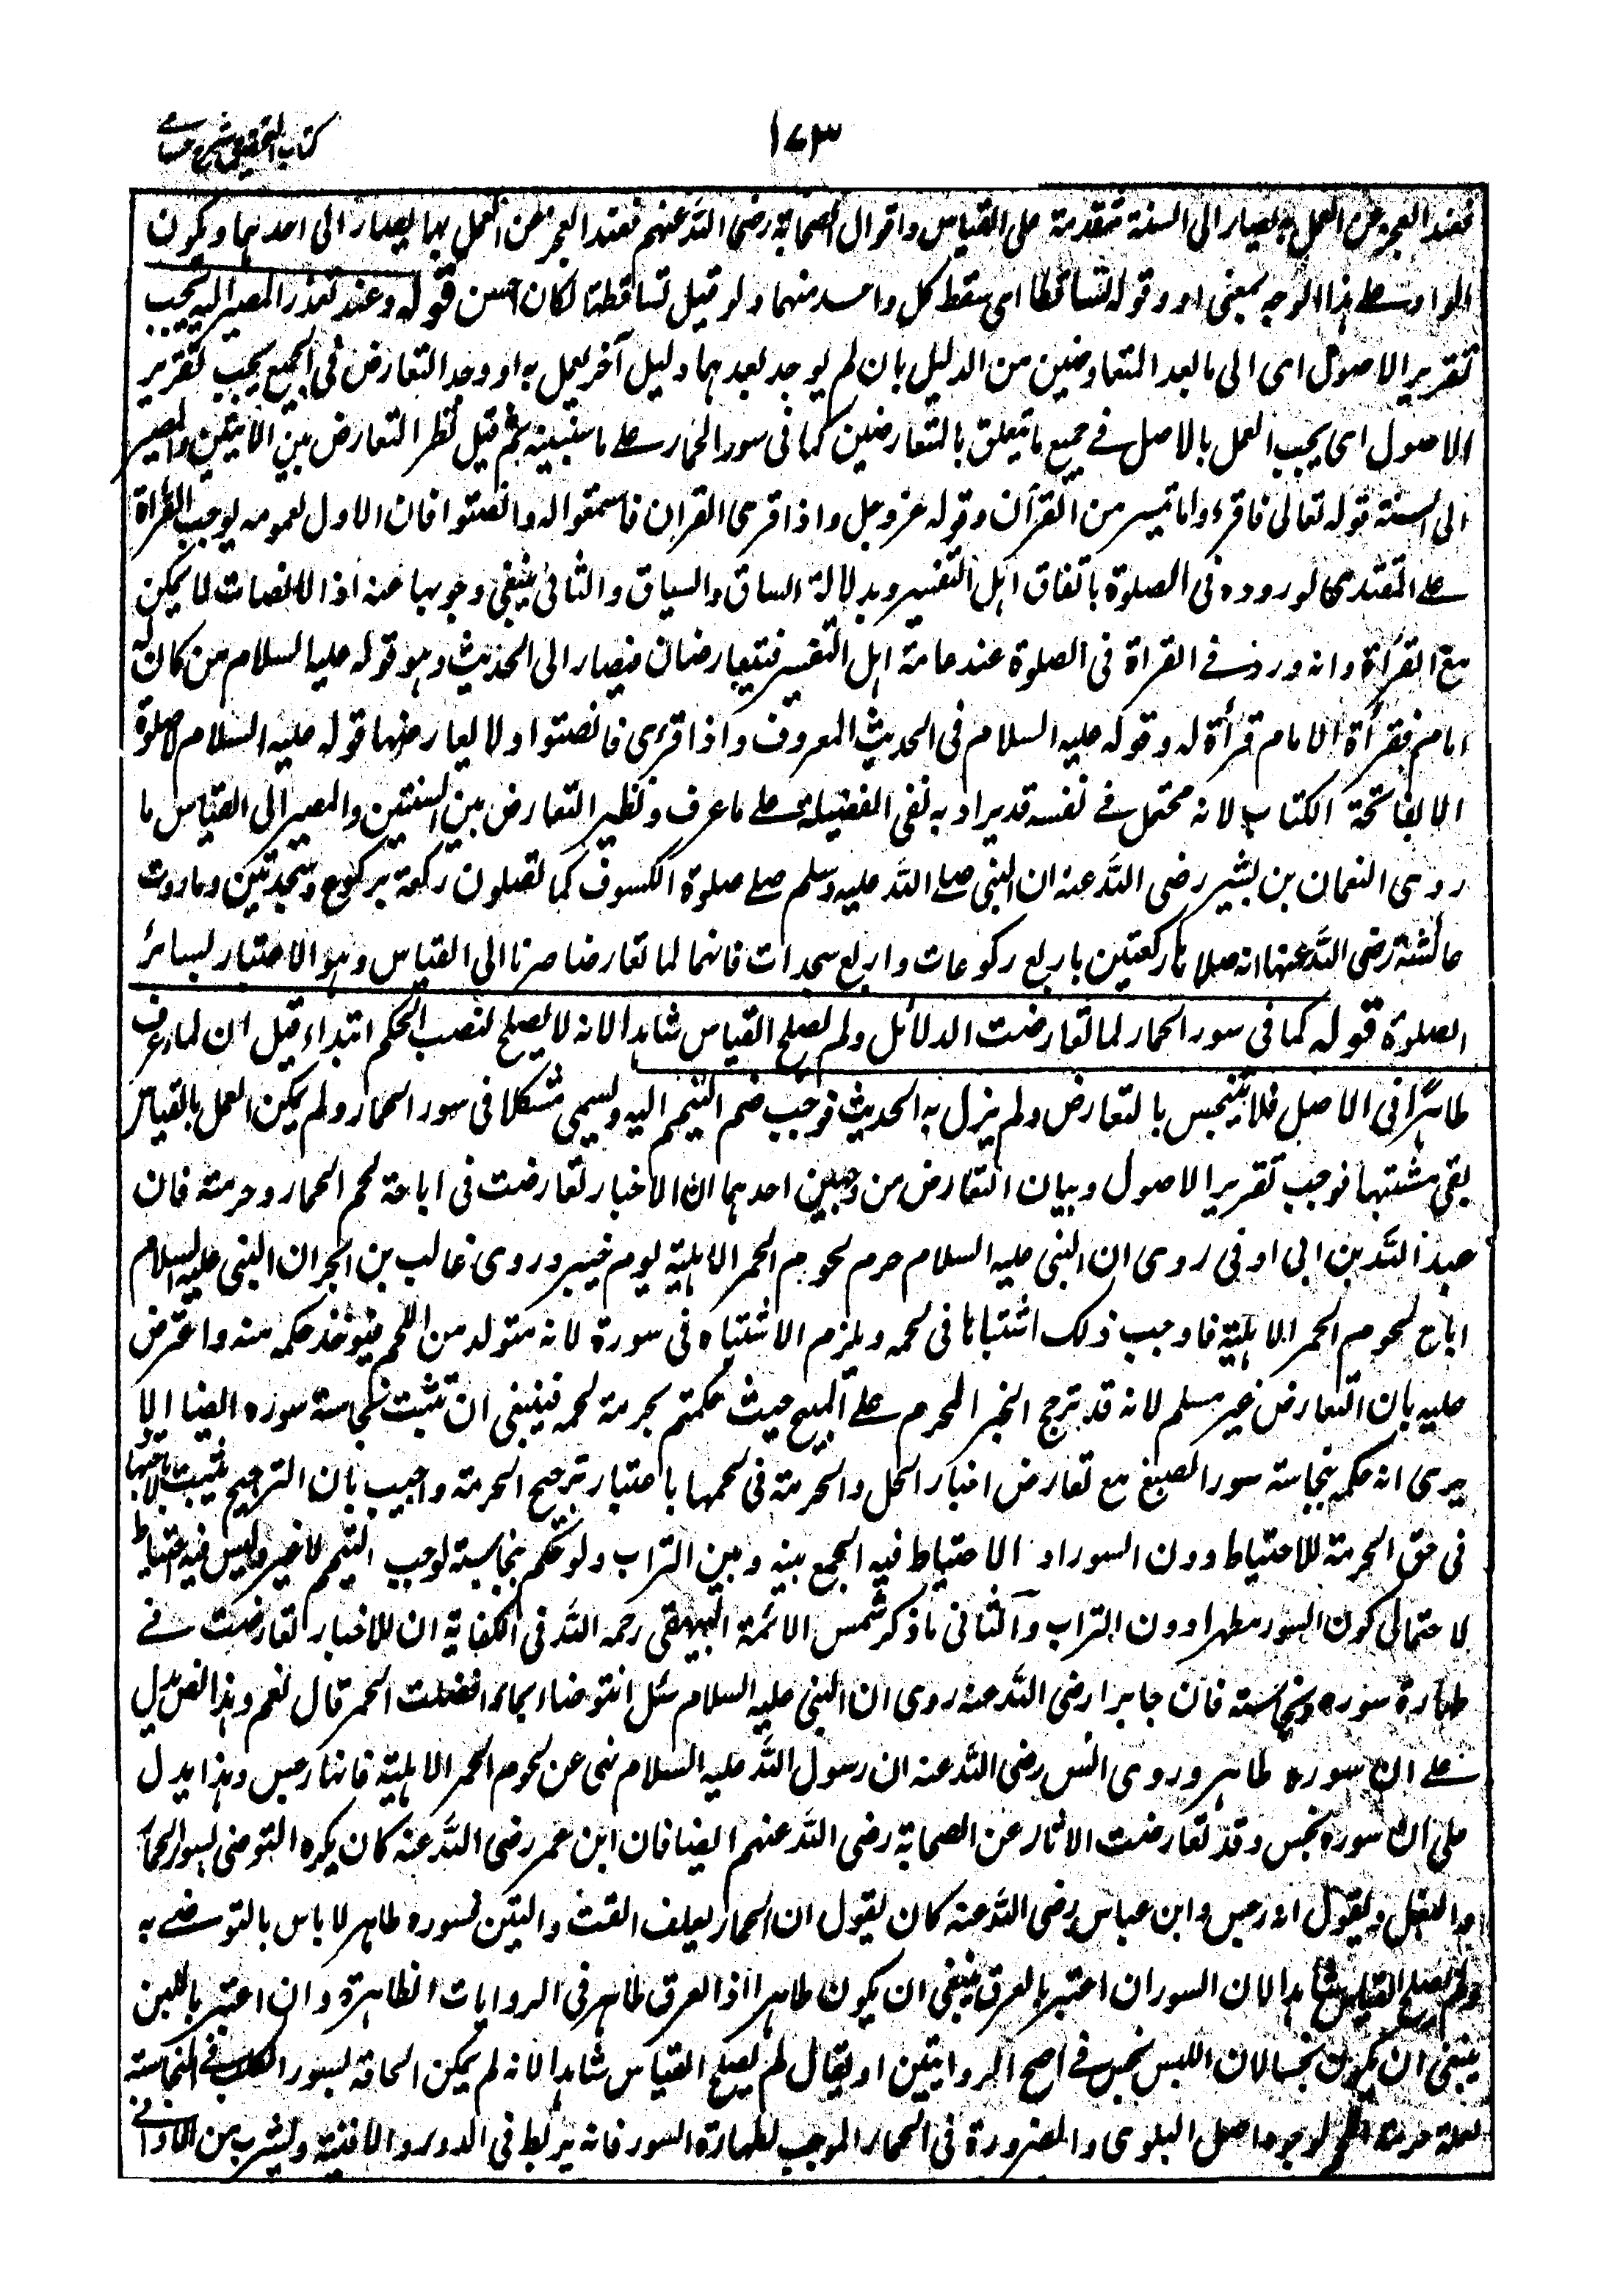 ١٧٣
كتاب التحقيق شرح حسامي
فعند العجز عن العمل به يصار الى السنة متقدمة على القياس واقوال الصحابة رضى الله عنهم فعند العجز عن العمل بها يصار الى احدهما ويكون
الواو على هذا الوجه بمعنى او وقوله تساقطا اى سقط كل واحد منهما ولو قيل تساقطتا لكان احسن قوله وعند تعذر المصير اليه يجب
تقرير الاصول اى الى ما بعد المتعارضين من الدليل بان لم يوجد بعدهما دليل آخر يعمل به او وجد التعارض فى الجميع يجب تقرير
الاصول اى يجب العمل بالاصل فى جميع ما يتعلق بالمتعارضين كما فى سور الحمار على ما سنبينه ثم قيل نظر التعارض بين الايتين والمصير
الى السنة قوله تعالى فاقرءوا ما تيسر من القرآن وقوله عز وجل واذا قرى القران فاستمعوا له وانصتوا فان الاول لعمومه يوجب القرأة
على المقتدى لوروده فى الصلوة باتفاق اهل التفسير وبدلالة الساق والسياق والثانى ينفى وجوبها عنه اذ الانصات لا يمكن
مع القرأة وانه ورد فى القراة فى الصلوة عند عامة اهل التفسير فتيعارضان فيصار الى الحديث وهو قوله عليه السلام من كان له
امام فقرأة الامام قرأة له وقوله عليه السلام فى الحديث المعروف واذا قرى فانصتوا ولا يعارضها قوله عليه السلام لا صلوة
الا بفاتحة الكتاب لانه محتمل فى نفسه قد يراد به نفى الفضيلة على ما عرف ونظير التعارض بين السنتين والمصير الى القياس ما
روى النعمان بن بشير رضى الله عنه ان النبى صلى الله عليه وسلم صلى صلوة الكسوف كما تصلون ركعة بركوع وسجدتين وما روت
عائشة رضى الله عنها انه صلاها ركعتين باربع ركوعات واربع سجدات فانهما لما تعارضا صرنا الى القياس وهو الاعتبار بسائر
الصلوة قوله كما فى سور الحمار لما تعارضت الدلائل ولم يصلح القياس شاهدا لانه لا يصلح لنصب الحكم ابتداء قيل ان الماء عرف
طاهرا فى الاصل فلا يتنجس بالتعارض ولم يزل به الحديث فوجب ضم التيمم اليه ويسمى مشكلا فى سور الحمار ولم يمكن العمل بالقياس
بقى مشتبها فوجب تقرير الاصول وبيان التعارض من وجهين احدهما ان الاخبار تعارضت فى اباحة لحم الحمار وحرمته فان
عبد الله بن ابى اوفى روى ان النبى عليه السلام حرم لحوم الحمر الاهلية يوم خيبر وروى غالب بن ابجر ان النبى عليه السلام
اباح لحوم الحمر الاهلية فاوجب ذلك اشتباها فى لحمه ويلزم الاشتباه فى سورة لانه متولد من اللحم فيوخذ حكمه منه واعترض
عليه بان التعارض غير مسلم لانه قد ترجح الخبر المحرم على المبيح حيث حكمتم بحرمة لحمه فينبغى ان تثبت نجاسة سوره ايضا الا
يرى انه حكم بنجاسة سور الضبع مع تعارض اخبار الحل والحرمة فى لحمها باعتبار ترجيح الحرمة واجيب بان الترجيح يثبت بالاجتهاد
فى حق الحرمة للاحتياط دون السور اذ الاحتياط فيه الجمع بينه وبين التراب ولو حكم بنجاسته لوجب التيمم لا غير وليس فيه احتياط
لاحتمال كون السور مطهرا دون التراب والثانى ما ذكر شمس الائمة البيهقى رحمه الله فى الكفاية ان الاخبار تعارضت فى
طهارة سوره ونجاسته فان جابرا رضى الله عنه روى ان النبى عليه السلام سئل انتوضا بماء افضلت الحمر قال نعم وهذا النص يدل
على ان سوره طاهر وروى انس رضى الله عنه ان رسول الله عليه السلام نهى عن لحوم الحمر الاهلية فانها رجس وهذا يدل
على ان سوره نجس وقد تعارضت الاثار عن الصحابة رضى الله عنهم ايضا فان ابن عمر رضى الله عنه كان يكره التوضى بسور الحمار
والبغل ويقول انه رجس وابن عباس رضى الله عنه كان يقول ان الحمار يعلف القت والتبن فسوره طاهر لا باس بالتوضى به
ولم يصلح القياس شاهدا لان السور ان اعتبر بالعرق ينبغى ان يكون طاهرا اذ العرق طاهر فى الروايات الظاهرة وان اعتبر باللبن
ينبغى ان يكون نجسا لان اللبن نجس فى اصح الروايتين او يقال لم يصلح القياس شاهدا لانه لم يمكن الحاقه بسور الكلب فى النجاسة
لعلة حرمة اللحم لوجود اصل البلوى والضرورة فى الحمار الموجب لطهارة السور فانه يربط فى الدور والافنية ويشرب من الاوانى